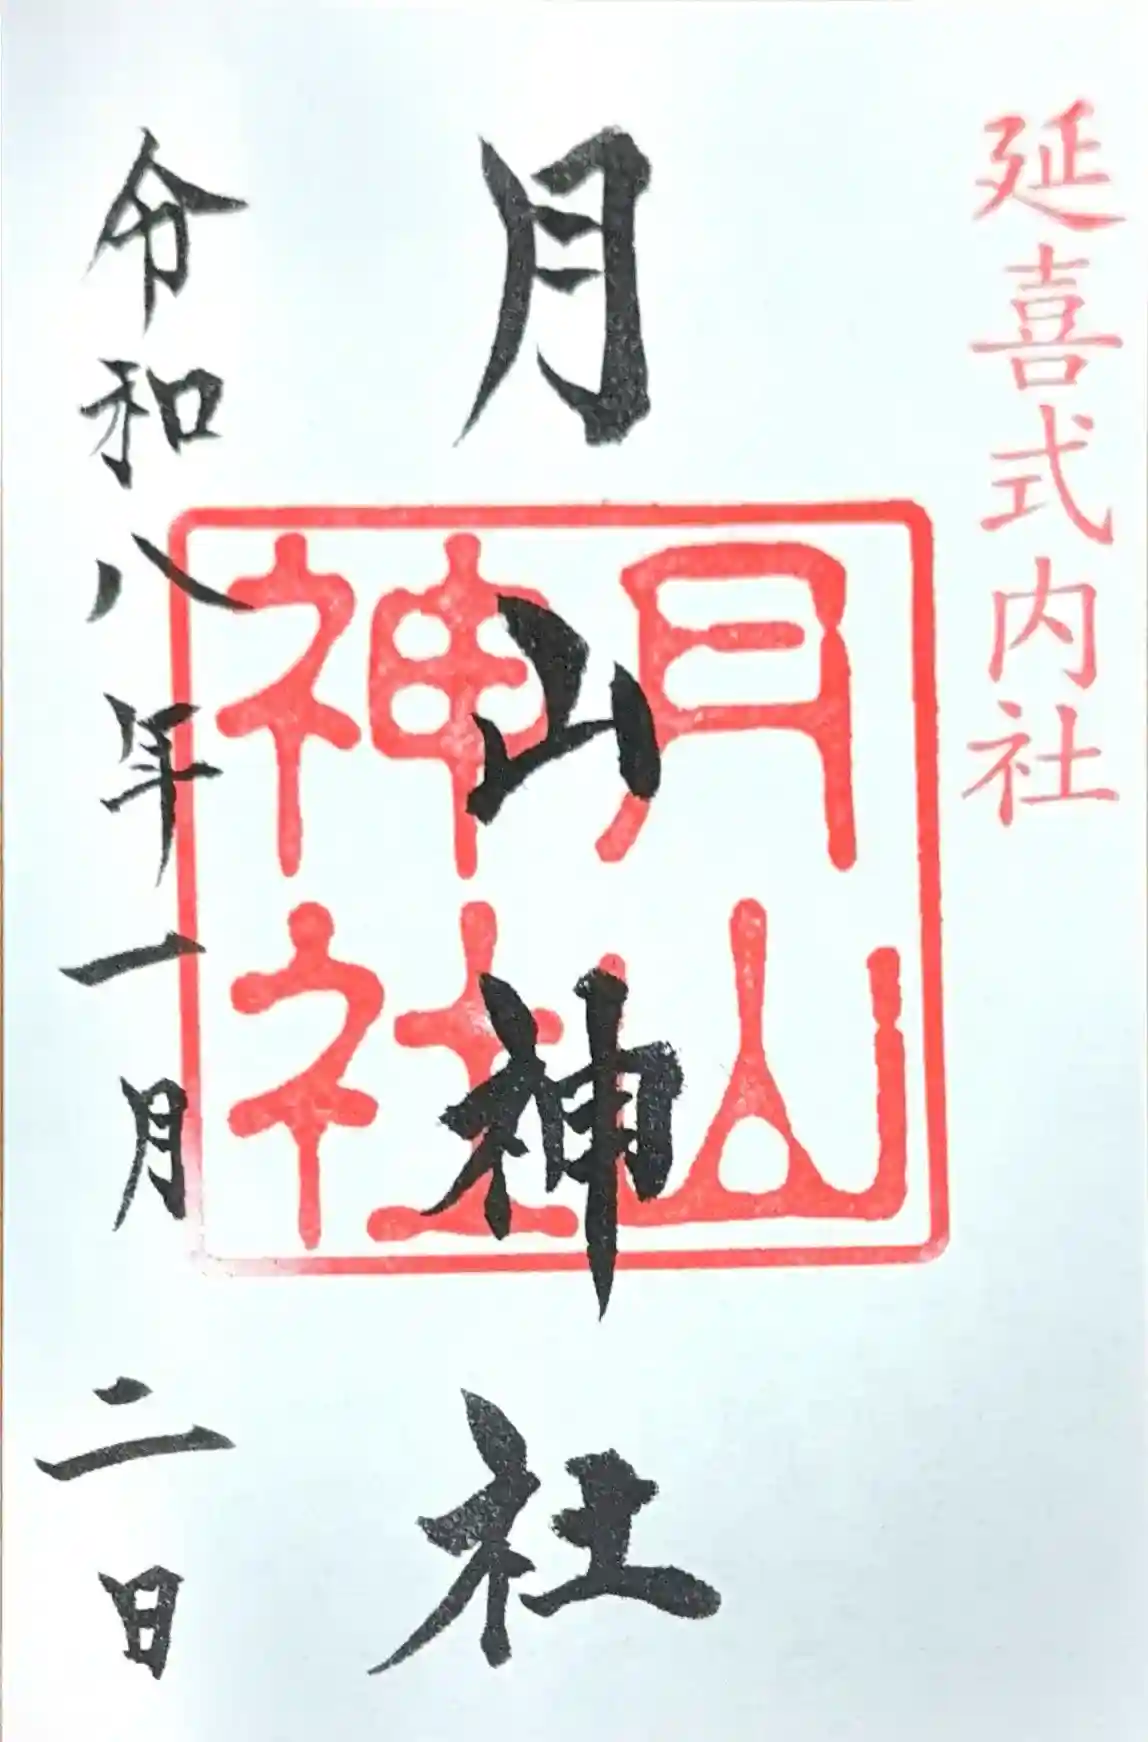 延喜式内社
月山神社
月山
神社
令和八年一月二日